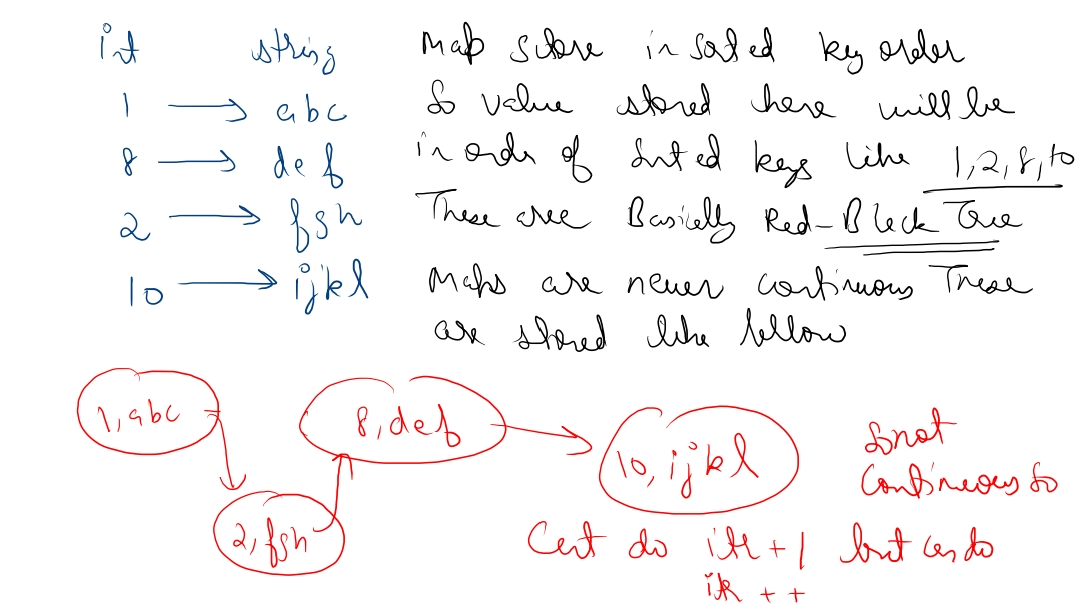 int string Map store in sorted key order
1 → abc So value stored here will be
8 → def in order of sorted keys like 1,2,8,10
2 → fgh These are Basically Red-Black Tree
10 → ijkl Maps are never continuous These
are stored like bellow
1,abc 8,def
10,ijkl So not
continuous so
2,fgh Cant do itr + 1 but can do
itr ++